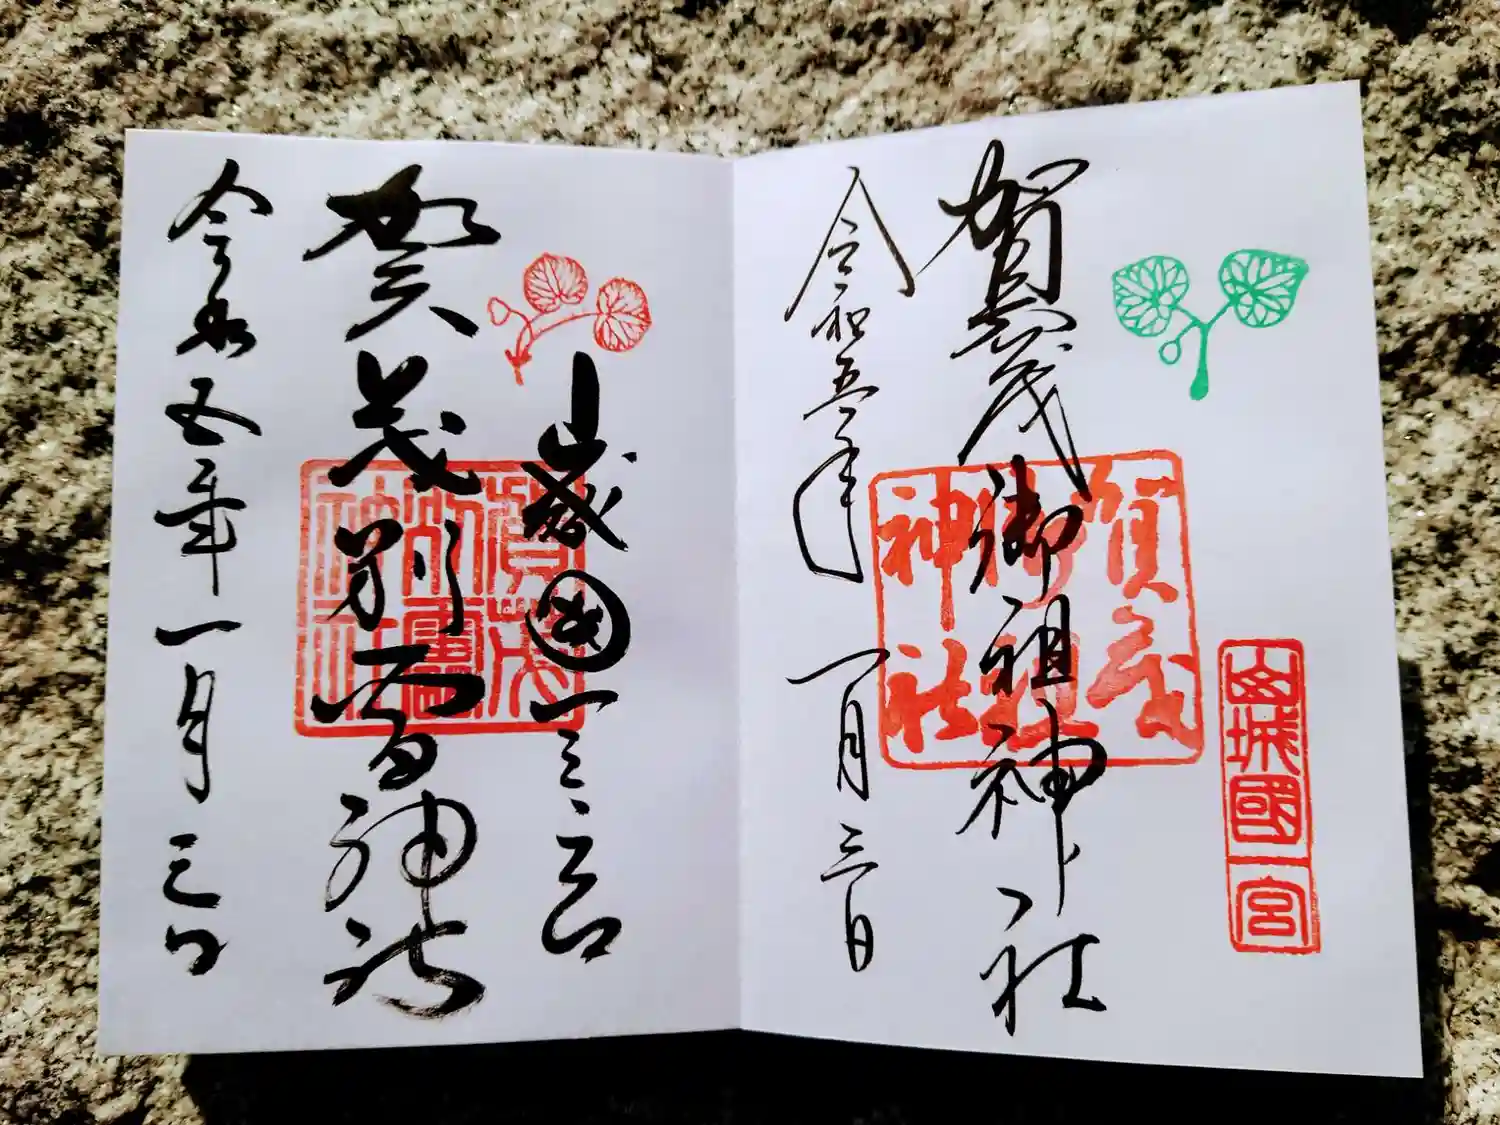 賀茂御祖神社
令和五年
一月三日
賀茂
御祖
神社
山城國一宮
山城国一之宮
賀茂別雷神社
令和五年一月三日
賀茂
別雷
神社